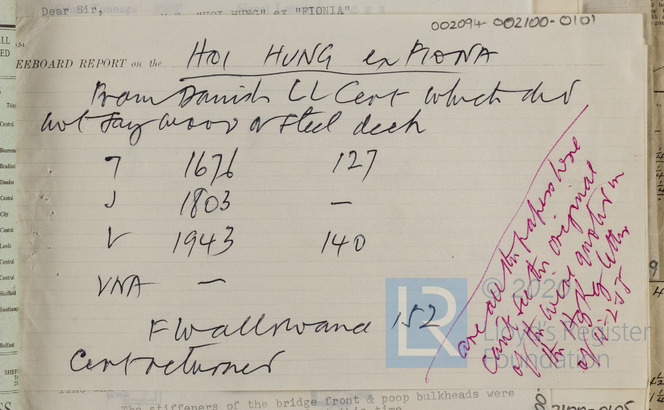 Dear Sir,
"HOI HUNG" ex "FIONIA"
002094-002100-0101
EEBOARD REPORT on the HOI HUNG ex FIONIA
From Danish LL Cert which did
not say wood or steel deck
T 1676 127
S 1803 —
W 1943 140
WNA —
FW allowance 152
Cert returned
are all the papers here
can't see the original
of the
in
the
letter
of
© 20
LR
Lloyd's Register
Foundation
The stiffeners of the bridge front & poop bulkheads were